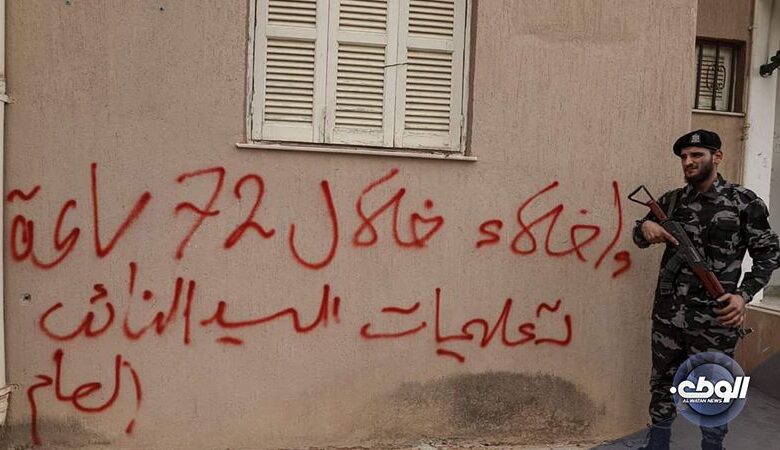 وإخلاء خلال 72 ساعة
تعليمات السيد النائب
العام
الوطن
ALWATAN NEWS